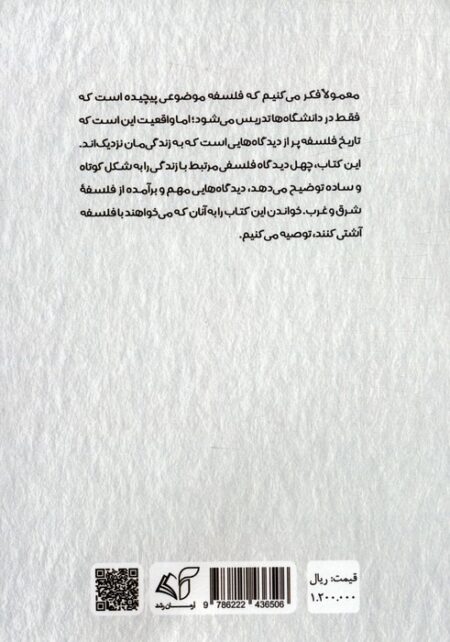 معمولاً فکر می‌کنیم که فلسفه موضوعی پیچیده است که
فقط در دانشگاه‌ها تدریس می‌شود؛ اما واقعیت این است که
تاریخ فلسفه پر از دیدگاه‌هایی است که به زندگی‌مان نزدیک‌اند.
این کتاب، چهل دیدگاه فلسفی مرتبط با زندگی را به شکل کوتاه
و ساده توضیح می‌دهد، دیدگاه‌هایی مهم و برآمده از فلسفۀ
شرق و غرب. خواندن این کتاب را به آنان که می‌خواهند با فلسفه
آشتی کنند، توصیه می‌کنیم.
قیمت: ریال
۱.۲۰۰.۰۰۰
9 786222 436506